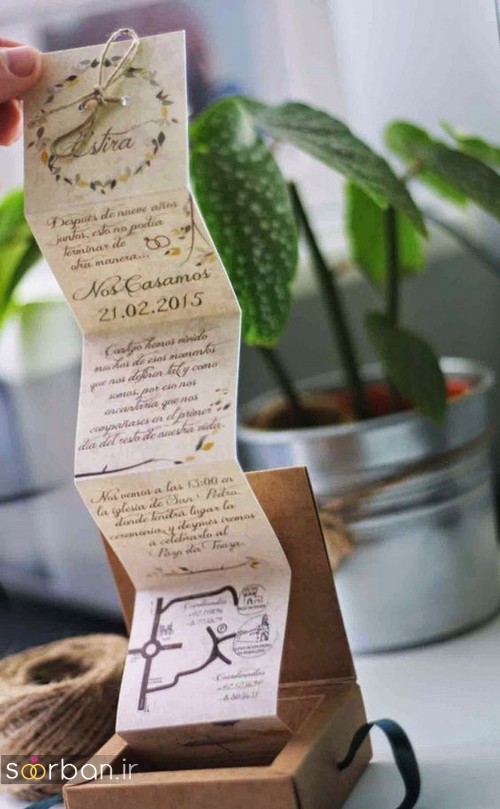 Estira
Después de nueve años
juntos, esto no podía
terminar de
otra manera...
Nos Casamos
21.02.2015
Contigo hemos vivido
muchos de esos momentos
que nos definen tal y como
somos, por eso nos
encantaría que nos
compañases en el primer
día del resto de nuestra vida.
Nos vemos a las 13:00 en
la iglesia de San Pedro,
donde tendrá lugar la
ceremonia, y después iremos
a celebrarlo al
Pazo da Touza.
Coordenadas
P
Coordenadas
soorban.ir